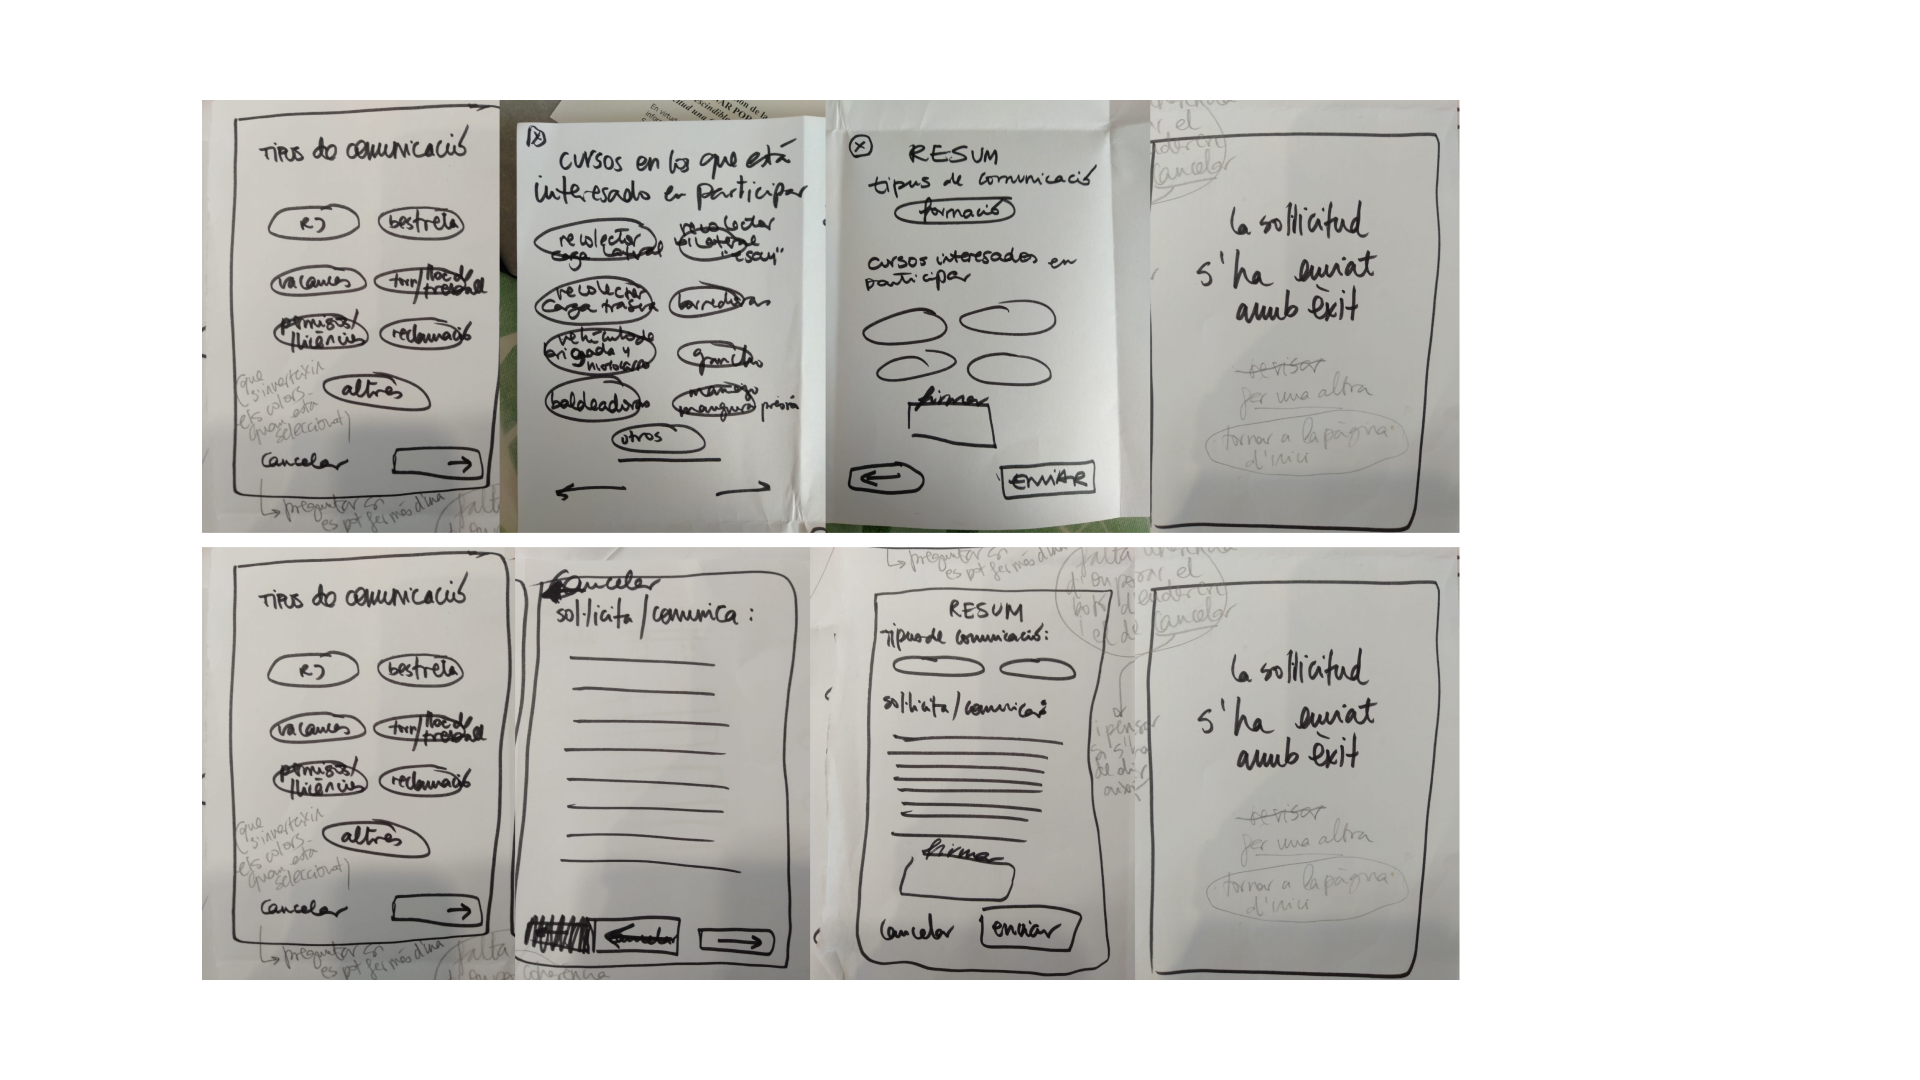 TIPUS de comunicació
RJ
bestreta
vacances
torn/lloc de treball
permisos/
llicències
reclamació
altres
(que
s'inverteixin
els colors
quan està
seleccionat)
Cancelar
→
↳ preguntar si
es pot fer més d'una
falta
X
CURSOS en los que está
interesado en participar
recolector
carga lateral
recolector
bilateral
"easy"
recolector
carga trasera
barredoras
vehículo de
brigada y
motocarro
gancho
baldeadoras
manejo
manguera presión
otros
← →
X
RESUM
tipus de comunicació
formació
cursos interesados en
participar
firmar
←
ENVIAR
cancelar
la sol·licitud
s'ha enviat
amb èxit
revisar
fer una altra
tornar a la pàgina
d'inici
TIPUS de comunicació
RJ
bestreta
vacances
torn/lloc de treball
permisos/
llicències
reclamació
altres
(que
s'inverteixin
els colors
quan està
seleccionat)
Cancelar
→
↳ preguntar si
es pot fer més d'una
falta
Cancelar
sol·licita/comunica:
←
→
coherència
↳ preguntar si
es pot fer més d'una
RESUM
Tipus de comunicació:
sol·licita/comunica:
firmar
Cancelar
enviar
falta coherència
el
i el de cancelar
i pensar
si s'ha
de dir
així
la sol·licitud
s'ha enviat
amb èxit
revisar
fer una altra
tornar a la pàgina
d'inici